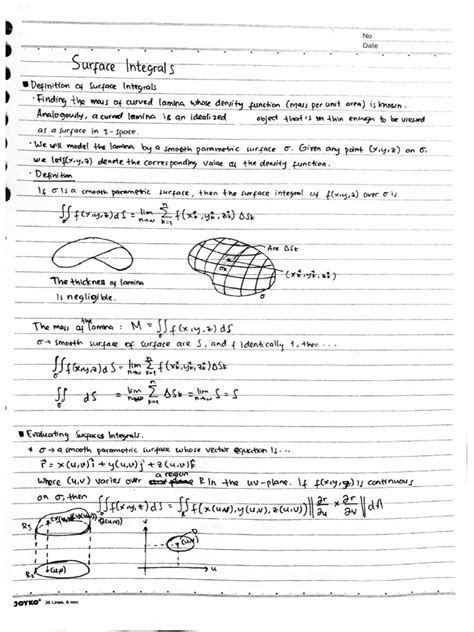 No
Date
Surface Integrals
■ Definition of Surface Integrals
· Finding the mass of curved lamina whose density function (mass per unit area) is known.
Analogously, a curved lamina is an idealized object that is thin enough to be viewed
as a surface in 3-space.
· We will model the lamina by a smooth parametric surface σ. Given any point (x,y,z) on σ,
we let f(x,y,z) denote the corresponding value of the density function.
· Definition
If σ is a smooth parametric surface, then the surface integral of f(x,y,z) over σ is
∬σ f(x,y,z) dS = lim n→∞ Σ k=1 n f(x*k, y*k, z*k) ΔSk
Are ΔSk
σk
(x*k, y*k, z*k)
σ
The thickness of lamina
is negligible.
The mass of the lamina : M = ∬σ f(x,y,z) dS
σ → smooth surface of surface are S, and f identically 1, then ···
∬σ f(x,y,z) dS = lim n→∞ Σ k=1 n f(x*k, y*k, z*k) ΔSk
∬σ dS = lim n→∞ Σ k=1 n ΔSk = lim n→∞ S = S
■ Evaluating Surfaces Integrals.
σ → a smooth parametric surface whose vector equation is ···
r = x(u,v)i + y(u,v)j + z(u,v)k
where (u,v) varies over a region R in the uv-plane. If f(x,y,z) is continuous
on σ, then ∬σ f(x,y,z) dS = ∬R f(x(u,v), y(u,v), z(u,v)) ‖∂r/∂u × ∂r/∂v‖ dA
R3
(x(u,v), y(u,v), z(u,v))
v
R
(u,v)
R2
(u,v)
u
JOYKO 36 Lines, 8 mm